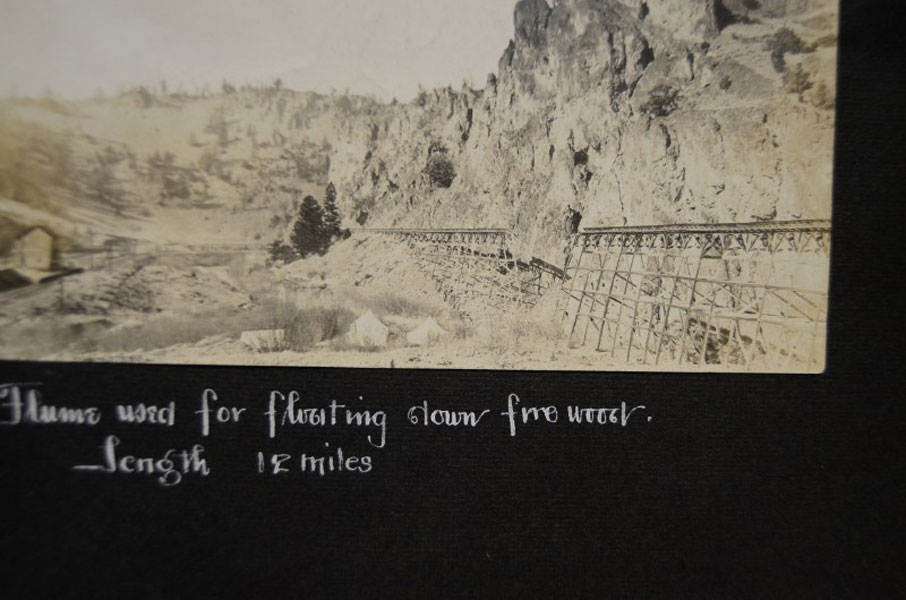 Flume used for floating down fire wood.
Length 12 miles